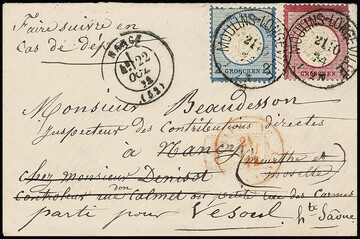 Faire suivre en
cas de dép
NANCY
22
OCT.
74
(52)
MOULINS-LONG
21 10
74
2 GROSCHEN 2
GROSCHEN
Monsieur Beaudesson
Inspecteur des Contributions directes
à Nancy
(meurthe et
moselle)
chez monsieur Denisot
Controleur rue don Calmet ou petite rue des Carmes
parti pour Vesoul
hte Saône